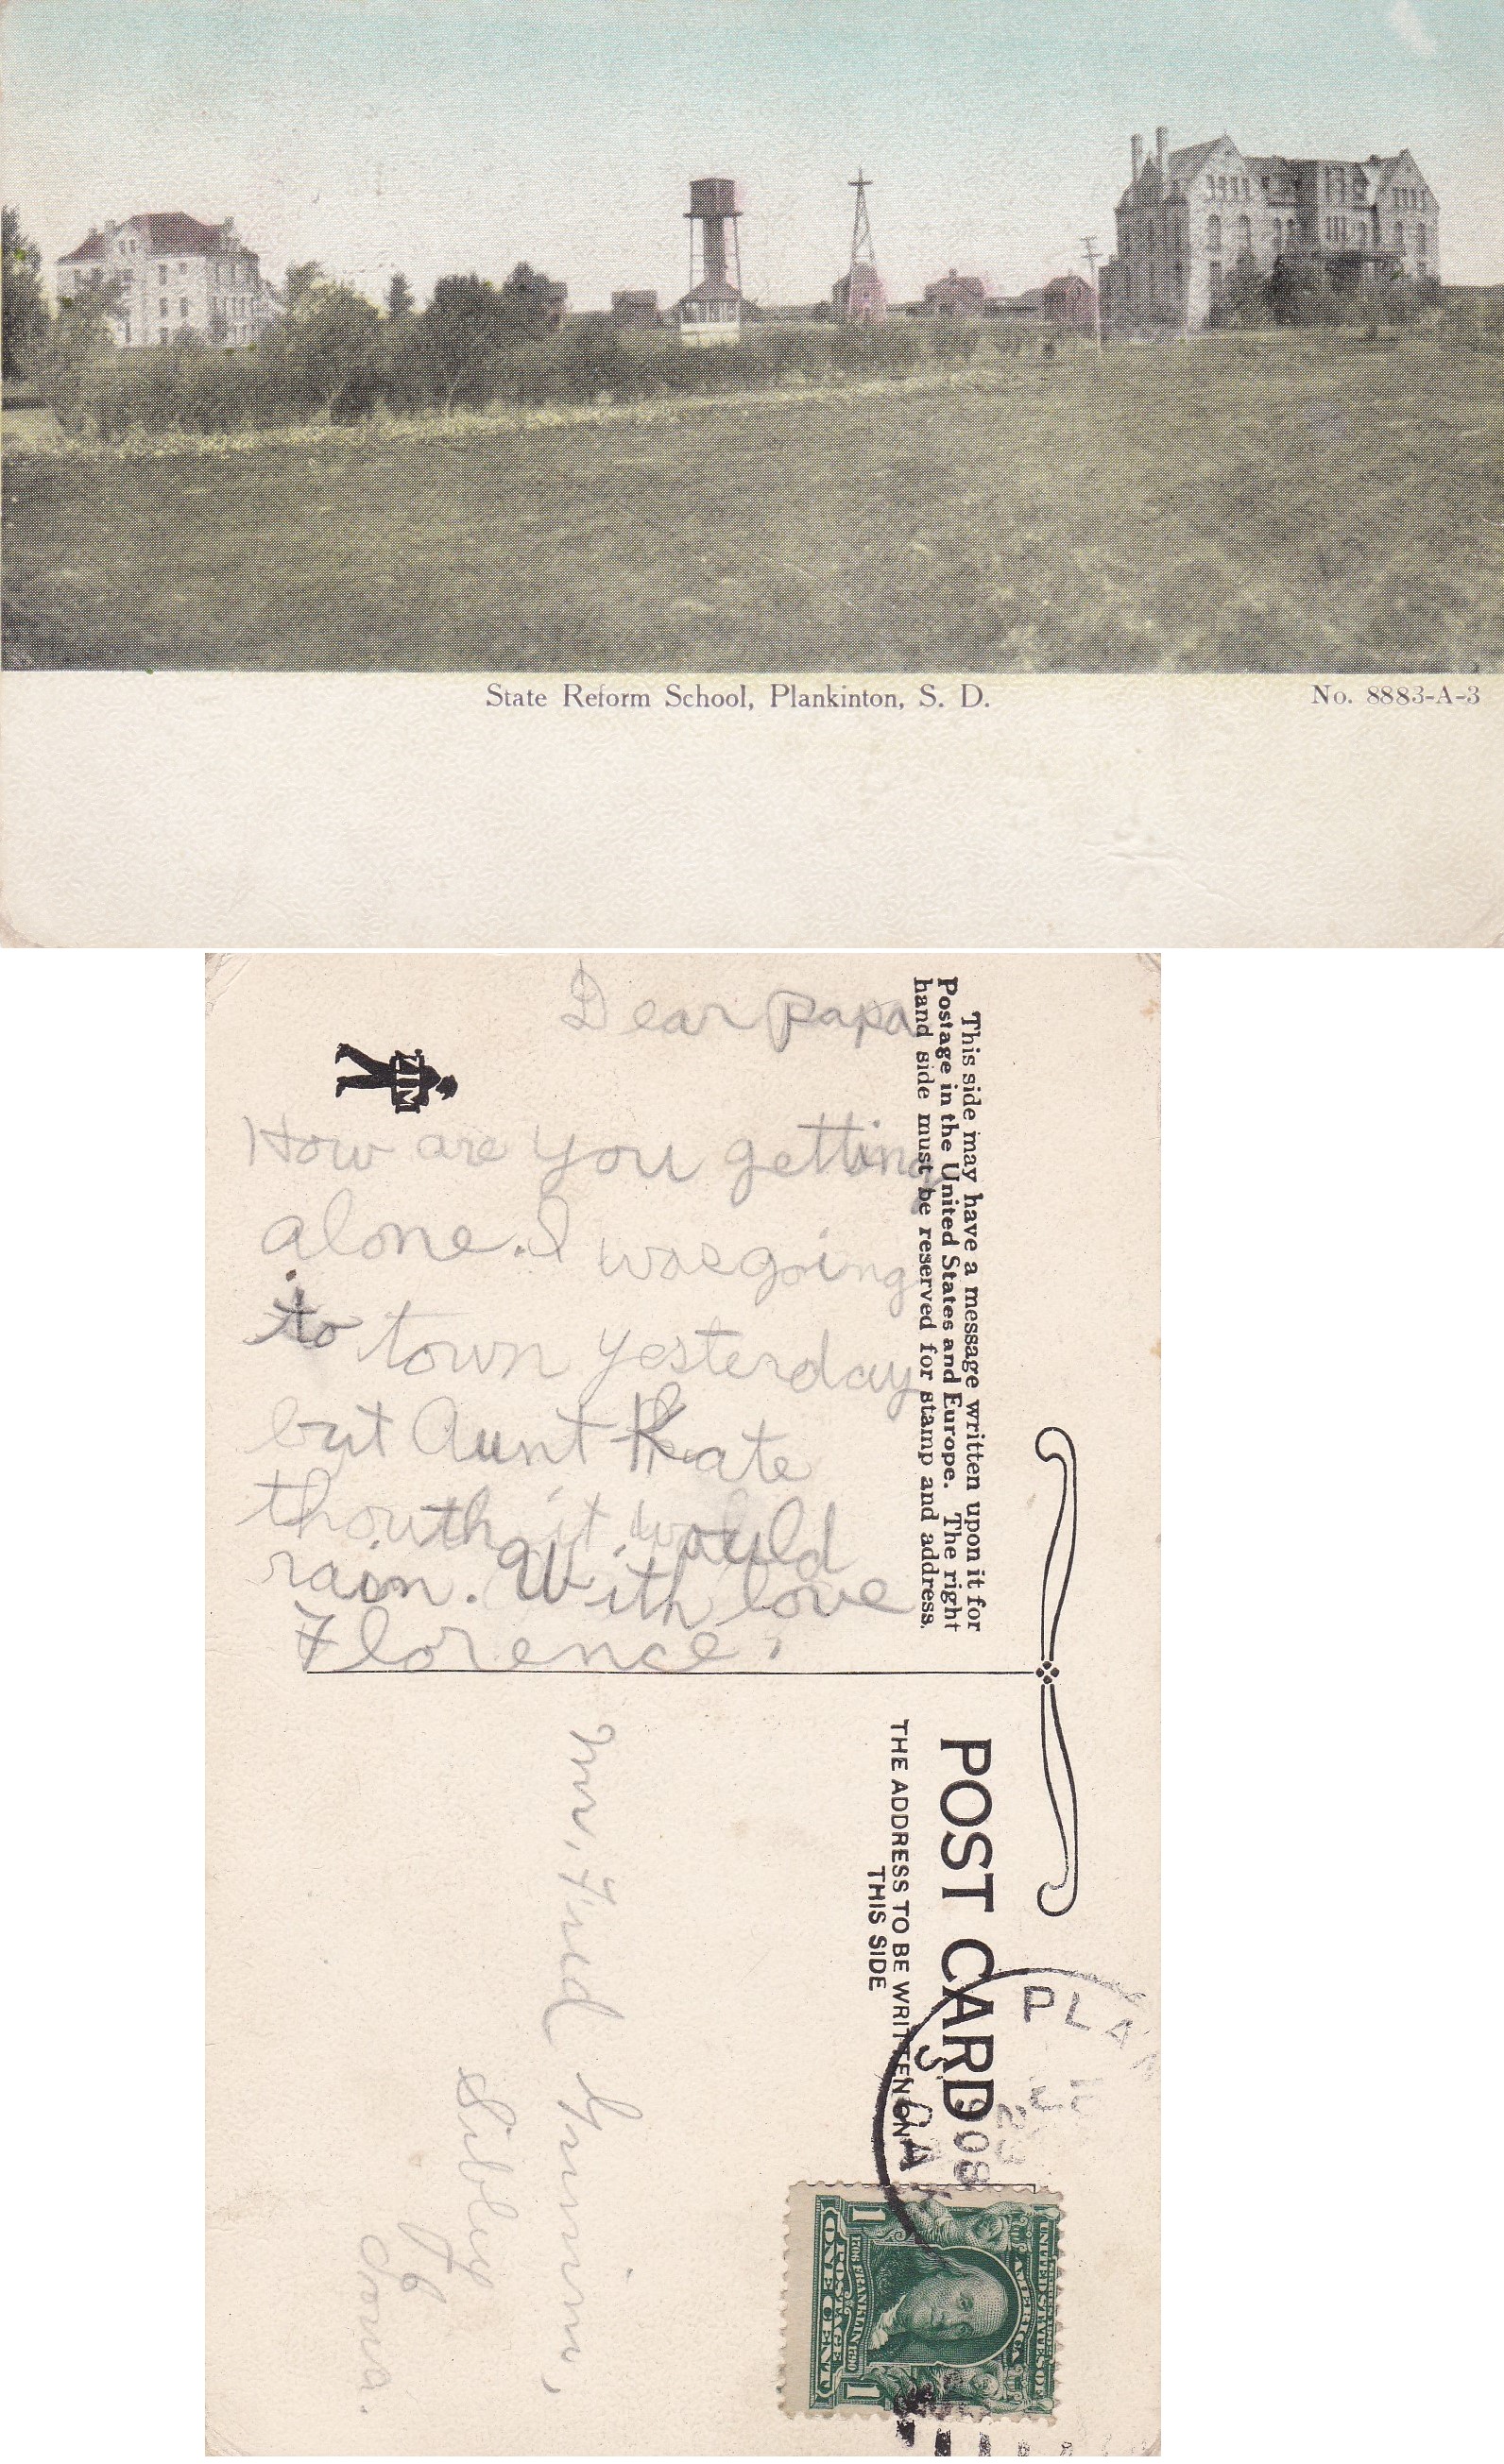 State Reform School, Plankinton, S. D.
No. 8883-A-3
Dear Papa
How are you getting
alone. I was going
to town yesterday
but Aunt Kate
thouth it would
rain. With love
Florence.
ZIM
This side may have a message written upon it for
Postage in the United States and Europe. The right
hand side must be reserved for stamp and address.
POST CARD
THE ADDRESS TO BE WRITTEN ON
THIS SIDE
Mr. Fred
Sibley
Iowa.
PLAN
23
1908
S. DAK
UNITED STATES OF
AMERICA
1708 FRANKLIN 1790
POSTAGE
1 ONE CENT 1